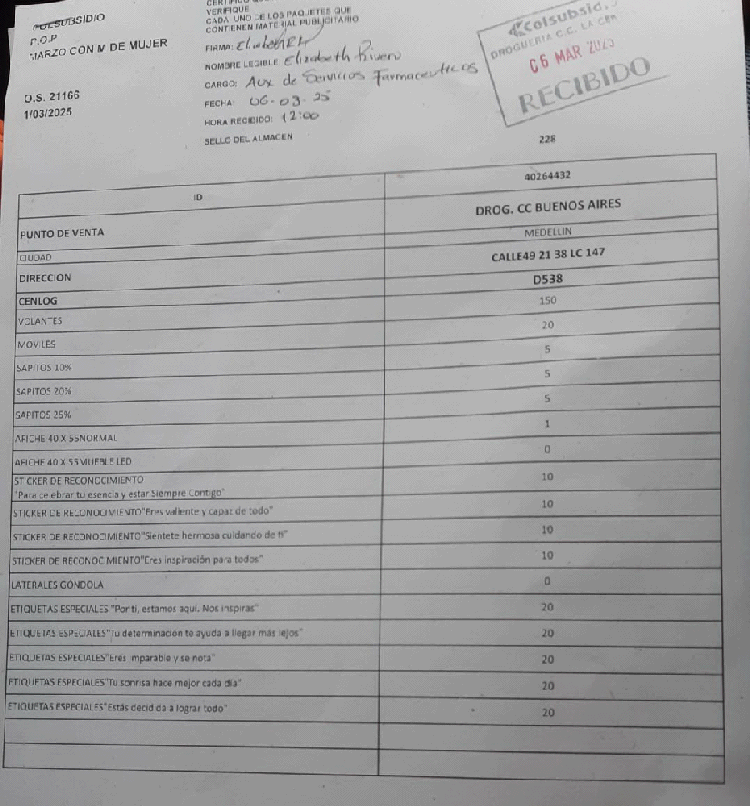 COLSUBSIDIO
P.O.P
MARZO CON M DE MUJER
O.S. 21166
1/03/2025
VERIFIQUE
CADA UNO DE LOS PAQUETES QUE
CONTIENEN MATERIAL PUBLICITARIO
FIRMA:
NOMBRE LEGIBLE Elizabeth Rivero
CARGO: Aux de Servicios Farmaceuticos
FECHA: 06-03-25
HORA RECIBIDO: 12:00
SELLO DEL ALMACEN
Colsubsidio
DROGUERIA C.C. LA CER
06 MAR 2025
RECIBIDO
228
ID 90264432
PUNTO DE VENTA DROG. CC BUENOS AIRES
CIUDAD MEDELLIN
DIRECCION CALLE49 21 38 LC 147
CENLOG D538
VOLANTES 150
MOVILES 20
SAPITOS 10% 5
SAPITOS 20% 5
SAPITOS 25% 5
AFICHE 40 X 55NORMAL 1
AFICHE 40 X 55MUEBLE LED 0
STICKER DE RECONOCIMIENTO
"Para celebrar tu esencia y estar Siempre Contigo" 10
STICKER DE RECONOCIMIENTO"Eres valiente y capaz de todo" 10
STICKER DE RECONOCIMIENTO"Sientete hermosa cuidando de ti" 10
STICKER DE RECONOCIMIENTO"Eres inspiración para todos" 10
LATERALES GONDOLA 0
ETIQUETAS ESPECIALES "Por ti, estamos aqui. Nos inspiras" 20
ETIQUETAS ESPECIALES"Tu determinacion te ayuda a llegar más lejos" 20
ETIQUETAS ESPECIALES"Eres imparable y se nota" 20
ETIQUETAS ESPECIALES"Tu sonrisa hace mejor cada dia" 20
ETIQUETAS ESPECIALES"Estás decidida a lograr todo" 20